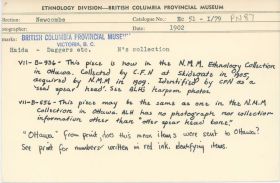 ETHNOLOGY DIVISION—BRITISH COLUMBIA PROVINCIAL MUSEUM
Series: Newcombe Catalogue No: Ec 51 - I/79 PN87
Photographer: Date: 1902
Remarks: BRITISH COLUMBIA PROVINCIAL MUSEUM
VICTORIA, B. C.
Haida - Daggers etc. N's collection
VII-B-936 - This piece is now in the N.M.M. Ethnology Collection
in Ottawa. Collected by C.F.N at Skidegate in 1905,
acquired by N.M.M in 1909. Identified by CFN as a
"seal spear head". See ALHS harpoon photos.
VII-B-656 - This piece may be the same as one in the Ottawa
collection. ALH has no photograph nor collection
information other than "otter spear head bone."
"Ottawa" from print, does this mean items were sent to Ottawa?
See print for numbers written in red ink identifying items.